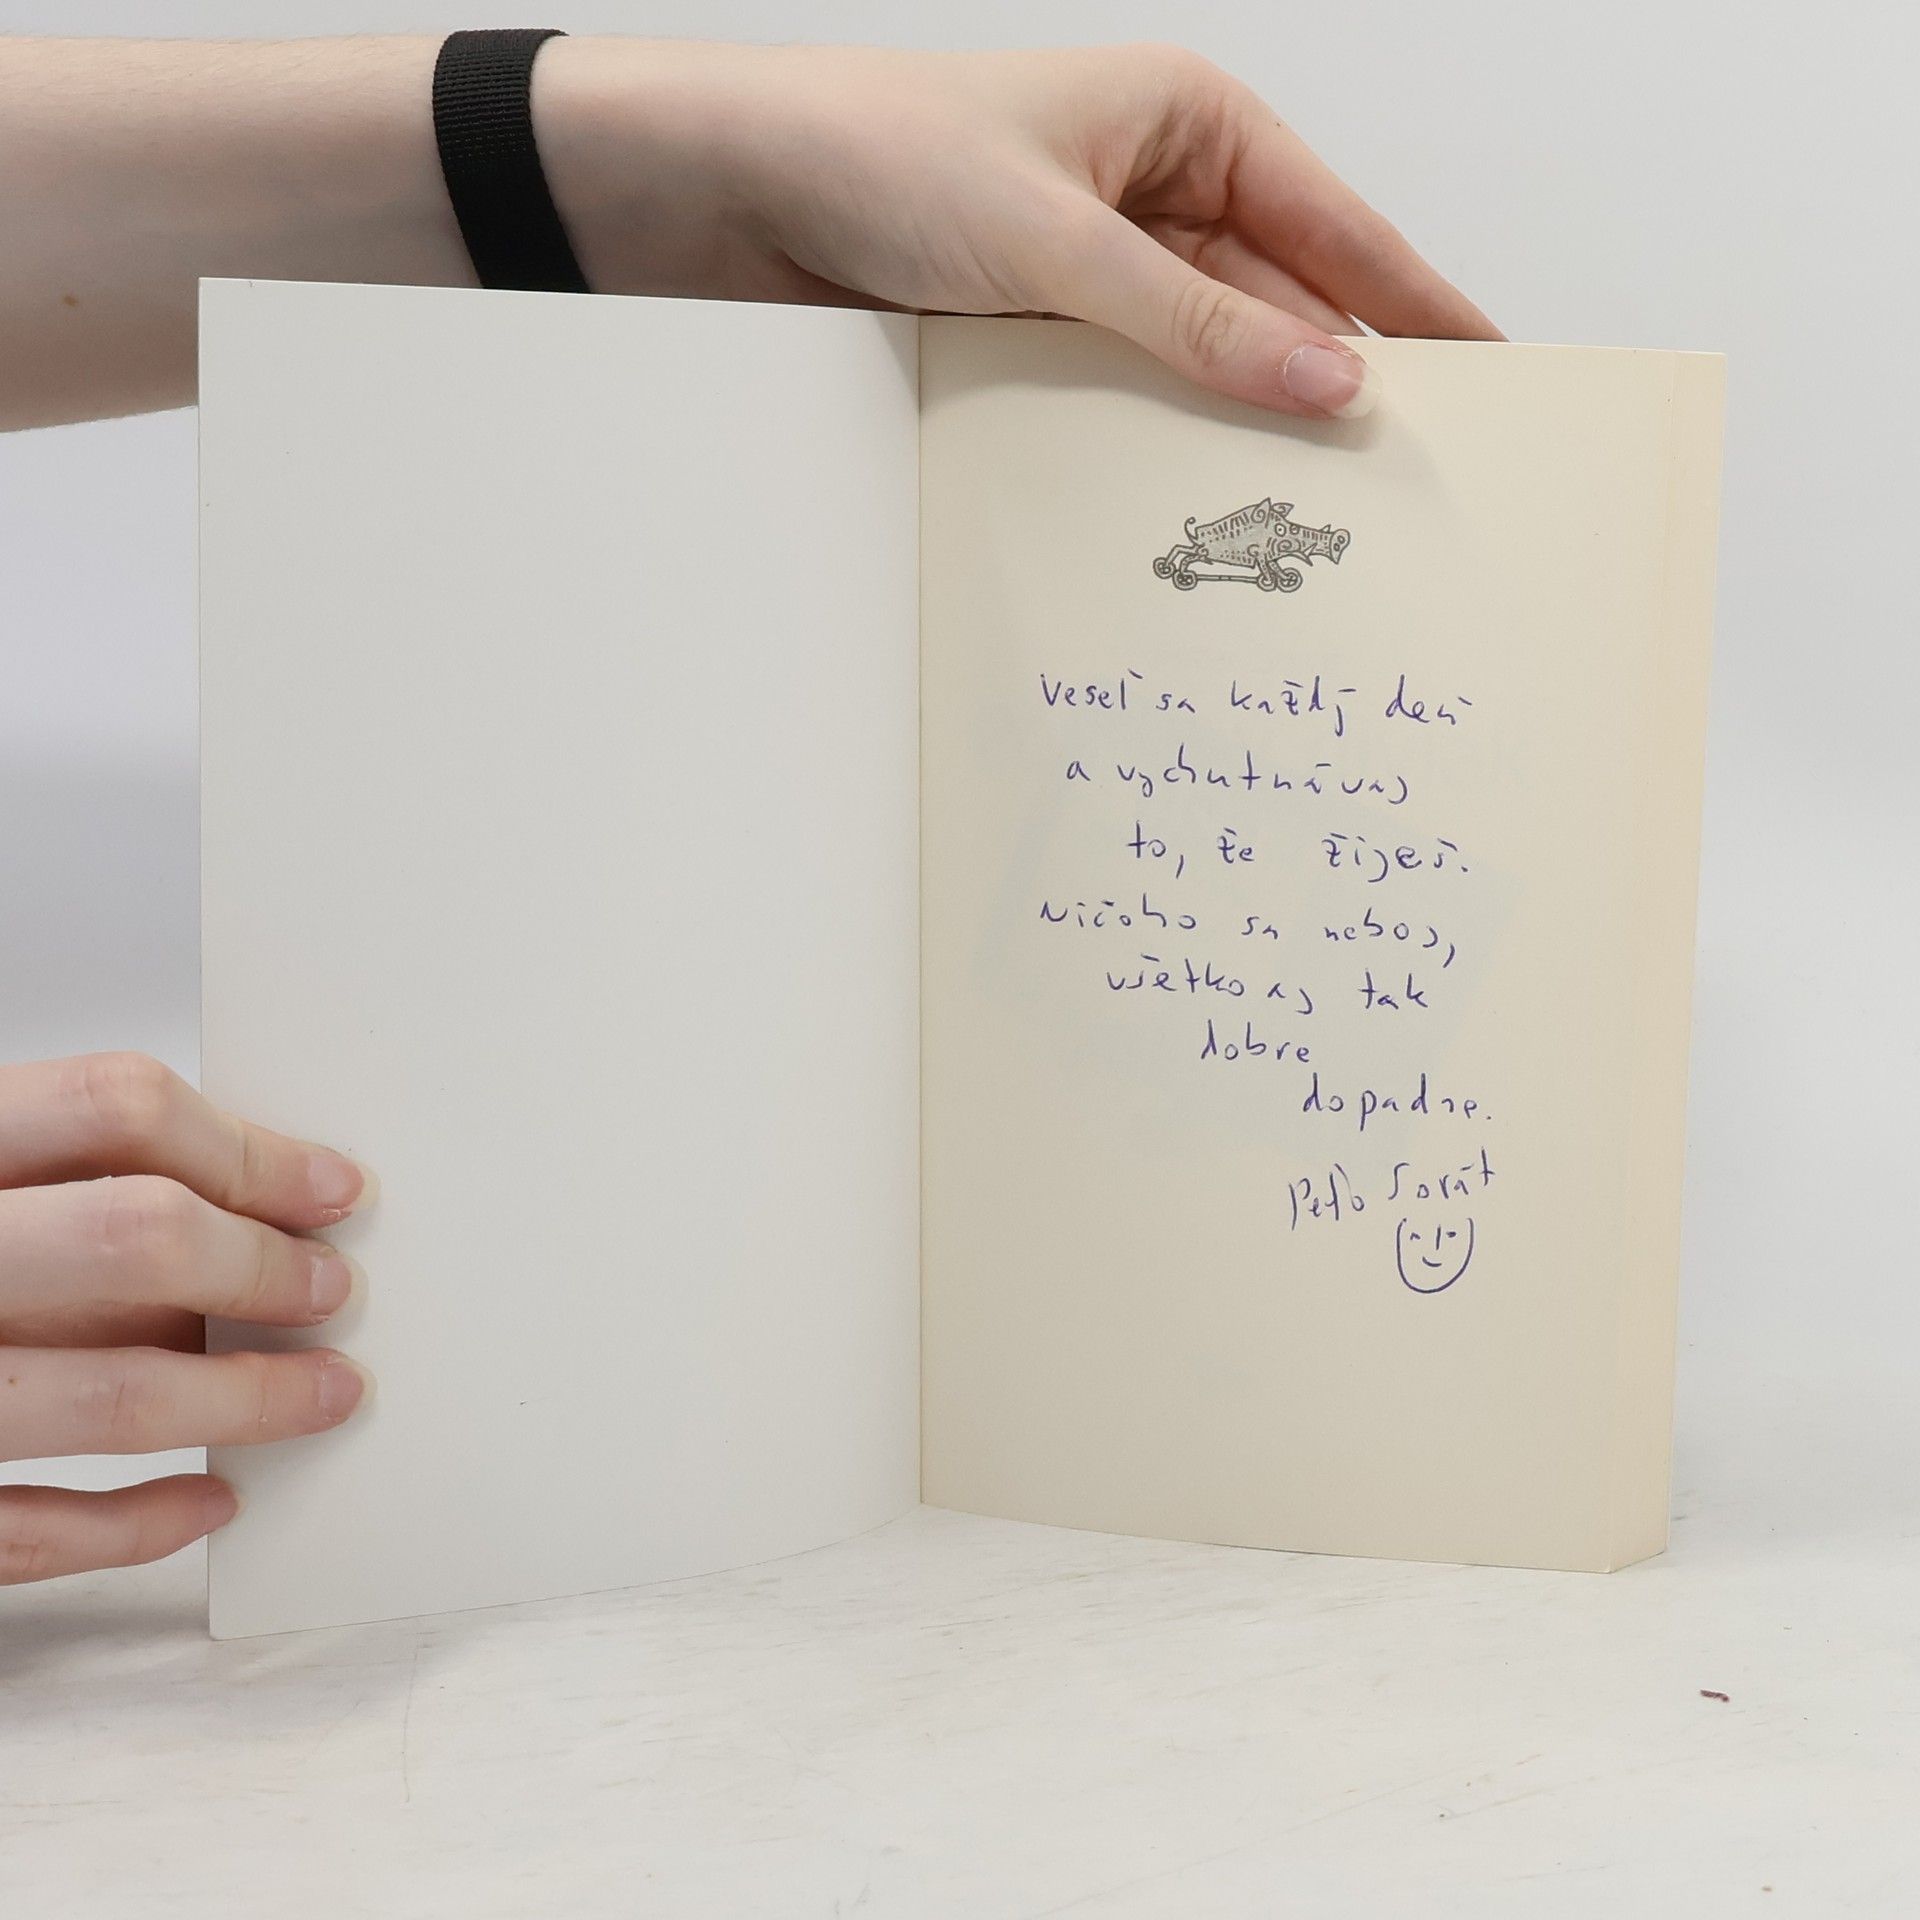 Veseľ sa každý deň
a vychutnávaj
to, že žiješ.
Ničoho sa neboj,
všetko aj tak
dobre
dopadne.
Peťo Sorát